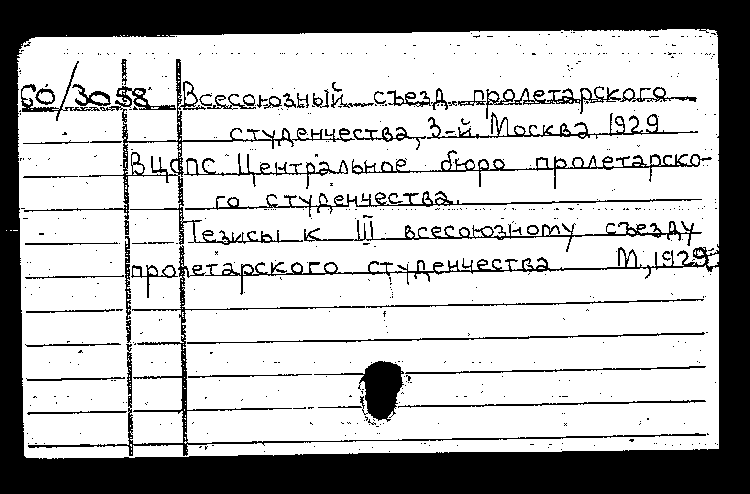 60/3058 Всесоюзный съезд пролетарского
студенчества, 3-й. Москва. 1929
ВЦСПС. Центральное бюро пролетарско-
го студенчества.
Тезисы к III всесоюзному съезду
пролетарского студенчества М., 1929.